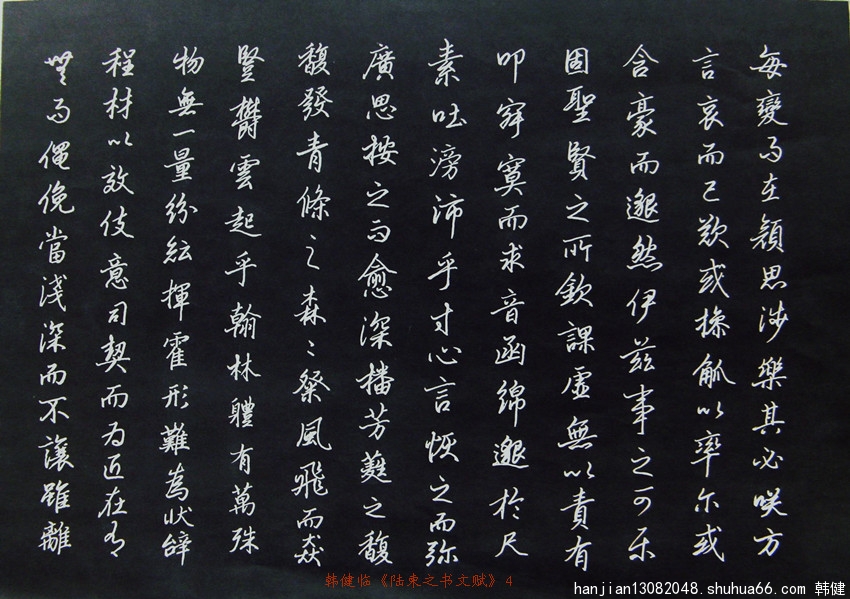 每變而在顔思涉樂其必咲方
言哀而已歎或操觚以率尓或
含豪而邈然伊兹事之可樂
固聖賢之所欽課虛無以責有
叩寂寞而求音函綿邈於尺
素吐滂沛乎寸心言恢之而弥
廣思按之而愈深播芳蕤之馥
馥發青條之森〻粲風飛而猋
豎欝雲起乎翰林體有萬殊
物無一量紛紜揮霍形難為狀辞
程材以效伎意司契而為匠在有
無而僶俛當淺深而不讓雖離
韩健临《陆柬之书文赋》4
hanjian13082048.shuhua66.com 韩健